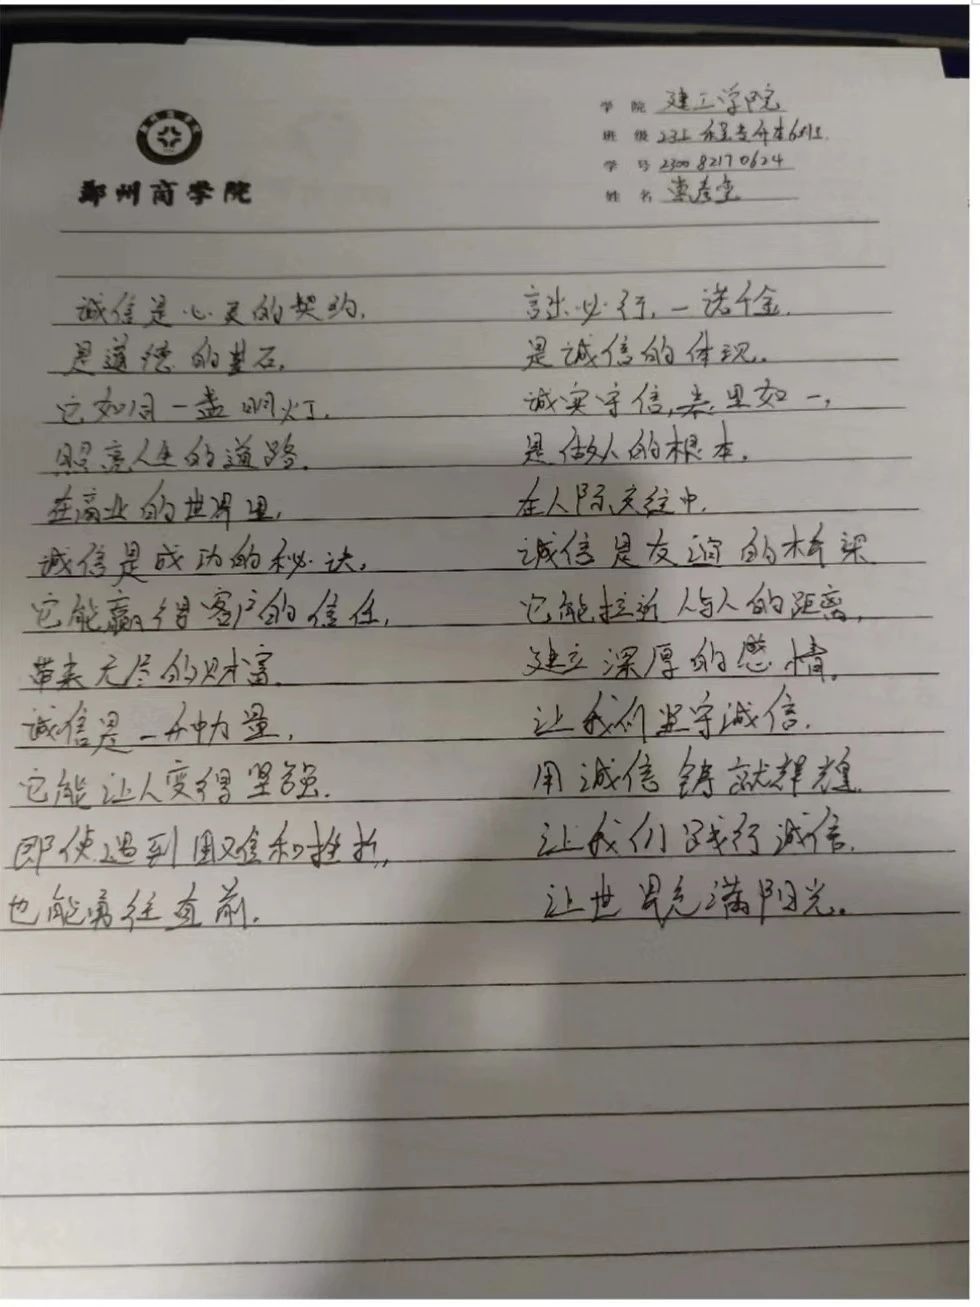 郑州商学院
学院 建工学院
班级
学号 2300 8217 0624
姓名
诚信是心灵的契约,
是道德的基石,
它如同一盏明灯,
照亮人生的道路.
在商业的世界里,
诚信是成功的秘诀,
它能赢得客户的信任,
带来无尽的财富.
诚信是一种力量,
它能让人变得坚强.
即使遇到困难和挫折,
也能勇往直前.
言出必行,一诺千金.
是诚信的体现.
诚实守信,表里如一,
是做人的根本.
在人际交往中.
诚信是友谊的桥梁
它能拉近人与人的距离,
建立深厚的感情.
让我们坚守诚信.
用诚信铸就辉煌.
让我们践行诚信.
让世界充满阳光。